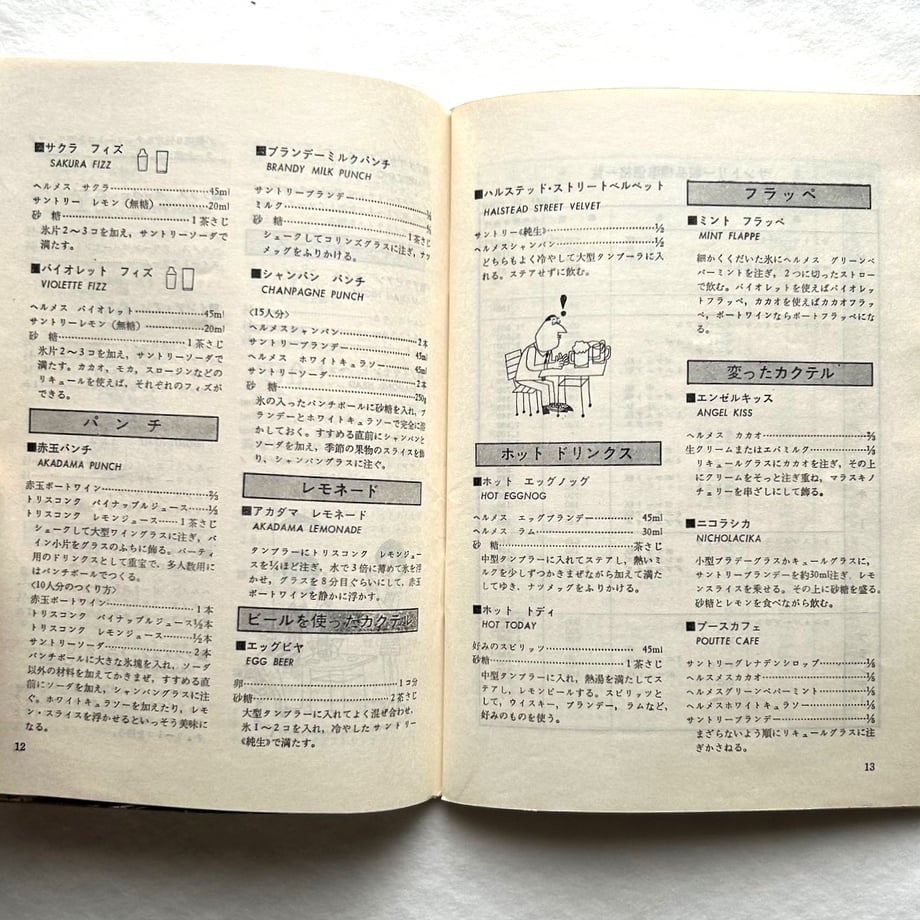 ■サクラ フィズ
SAKURA FIZZ
ヘルメス サクラ……45ml
サントリー レモン(無糖)……20ml
砂 糖……1茶さじ
氷片2〜3コを加え,サントリーソーダで
満たす。
■バイオレット フィズ
VIOLETTE FIZZ
ヘルメス バイオレット……45ml
サントリーレモン(無糖)……20ml
砂 糖……1茶さじ
氷片2〜3コを加え,サントリーソーダで
満たす。カカオ,モカ,スロージンなどの
リキュールを使えば,それぞれのフィズが
できる。
パンチ
■赤玉パンチ
AKADAMA PUNCH
赤玉ポートワイン……⅔
トリスコンク パイナップルジュース……⅓
トリスコンク レモンジュース……1茶さじ
シェークして大型ワイングラスに注ぎ,パ
イン小片をグラスのふちに飾る。パーティ
用のドリンクとして重宝で,多人数用に
はパンチボールでつくる。
〈10人分のつくり方〉
赤玉ポートワイン……1本
トリスコンク パイナップルジュース½本
トリスコンク レモンジュース……½本
サントリーソーダ……2本
パンチボールに大きな氷塊を入れ,ソーダ
以外の材料を加えてかきまぜ,すすめる直
前にソーダを加え,シャンパングラスに注
ぐ。ホワイトキュラソーを加えたり,レモ
ン・スライスを浮かせるといっそう美味に
なる。
12
■ブランデーミルクパンチ
BRANDY MILK PUNCH
サントリーブランデー……
ミルク……
砂 糖……1茶さじ
シェークしてコリンズグラスに注ぎ,ナツ
メッグをふりかける。
■シャンパン パンチ
CHANPAGNE PUNCH
〈15人分〉
ヘルメスシャンパン……2本
サントリーブランデー……45ml
ヘルメス ホワイトキュラソー……45ml
サントリーソーダ……2本
砂 糖……250g
氷の入ったパンチボールに砂糖を入れ,ブ
ランデーとホワイトキュラソーで完全に溶
かしておく。すすめる直前にシャンパンと
ソーダを加え,季節の果物のスライスを飾
り,シャンパングラスに注ぐ。
レモネード
■アカダマ レモネード
AKADAMA LEMONADE
タンブラーにトリスコンク レモンジュー
スを¼ほど注ぎ,水で3倍に薄めて氷を浮
かせ,グラスを8分目ぐらいにして,赤玉
ポートワインを静かに浮かす。
ビールを使ったカクテル
■エッグビヤ
EGG BEER
卵……1コ分
砂糖……2茶さじ
大型タンブラーに入れてよく混ぜ合わせ,
氷1〜2コを入れ,冷やしたサントリー
《純生》で満たす。
■ハルステッド・ストリートベルベット
HALSTEAD STREET VELVET
サントリー《純生》……½
ヘルメスシャンパン……½
どちらもよく冷やして大型タンブーラに入
れる。ステアせずに飲む。
!
ホット ドリンクス
■ホット エッグノッグ
HOT EGGNOG
ヘルメス エッグブランデー……45ml
ヘルメス ラム……30ml
砂 糖……茶さじ
中型タンブラーに入れてステアし,熱いミ
ルクを少しずつかきまぜながら加えて満た
してゆき,ナツメッグをふりかける。
■ホット トディ
HOT TODAY
好みのスピリッツ……45ml
砂糖……1茶さじ
中型タンブラーに入れ,熱湯を満たしてス
テアし,レモンピールする。スピリッツと
して,ウイスキー,ブランデー,ラムなど,
好みのものを使う。
フラッペ
■ミント フラッペ
MINT FLAPPE
細かくくだいた氷にヘルメス グリーンペ
パーミントを注ぎ,2つに切ったストロー
で飲む。バイオレットを使えばバイオレッ
トフラッペ,カカオを使えばカカオフラッ
ペ,ポートワインならポートフラッペにな
る。
変ったカクテル
■エンゼルキッス
ANGEL KISS
ヘルメス カカオ……⅔
生クリームまたはエバミルク……⅓
リキュールグラスにカカオを注ぎ,その上
にクリームをそっと注ぎ重ね,マラスキノ
チェリーを串ざしにして飾る。
■ニコラシカ
NICHOLACIKA
小型ブラデーグラスかキュールグラスに,
サントリーブランデーを約30ml注ぎ,レモ
ンスライスを乗せる。その上に砂糖を盛る。
砂糖とレモンを食べながら飲む。
■プースカフェ
POUTTE CAFE
サントリーグレナデンシロップ……⅕
ヘルメスカカオ……⅕
ヘルメスグリーンペパーミント……⅕
ヘルメスホワイトキュラソ……⅕
サントリーブランデー……⅕
まざらないよう順にリキュールグラスに注
ぎかさねる。
13